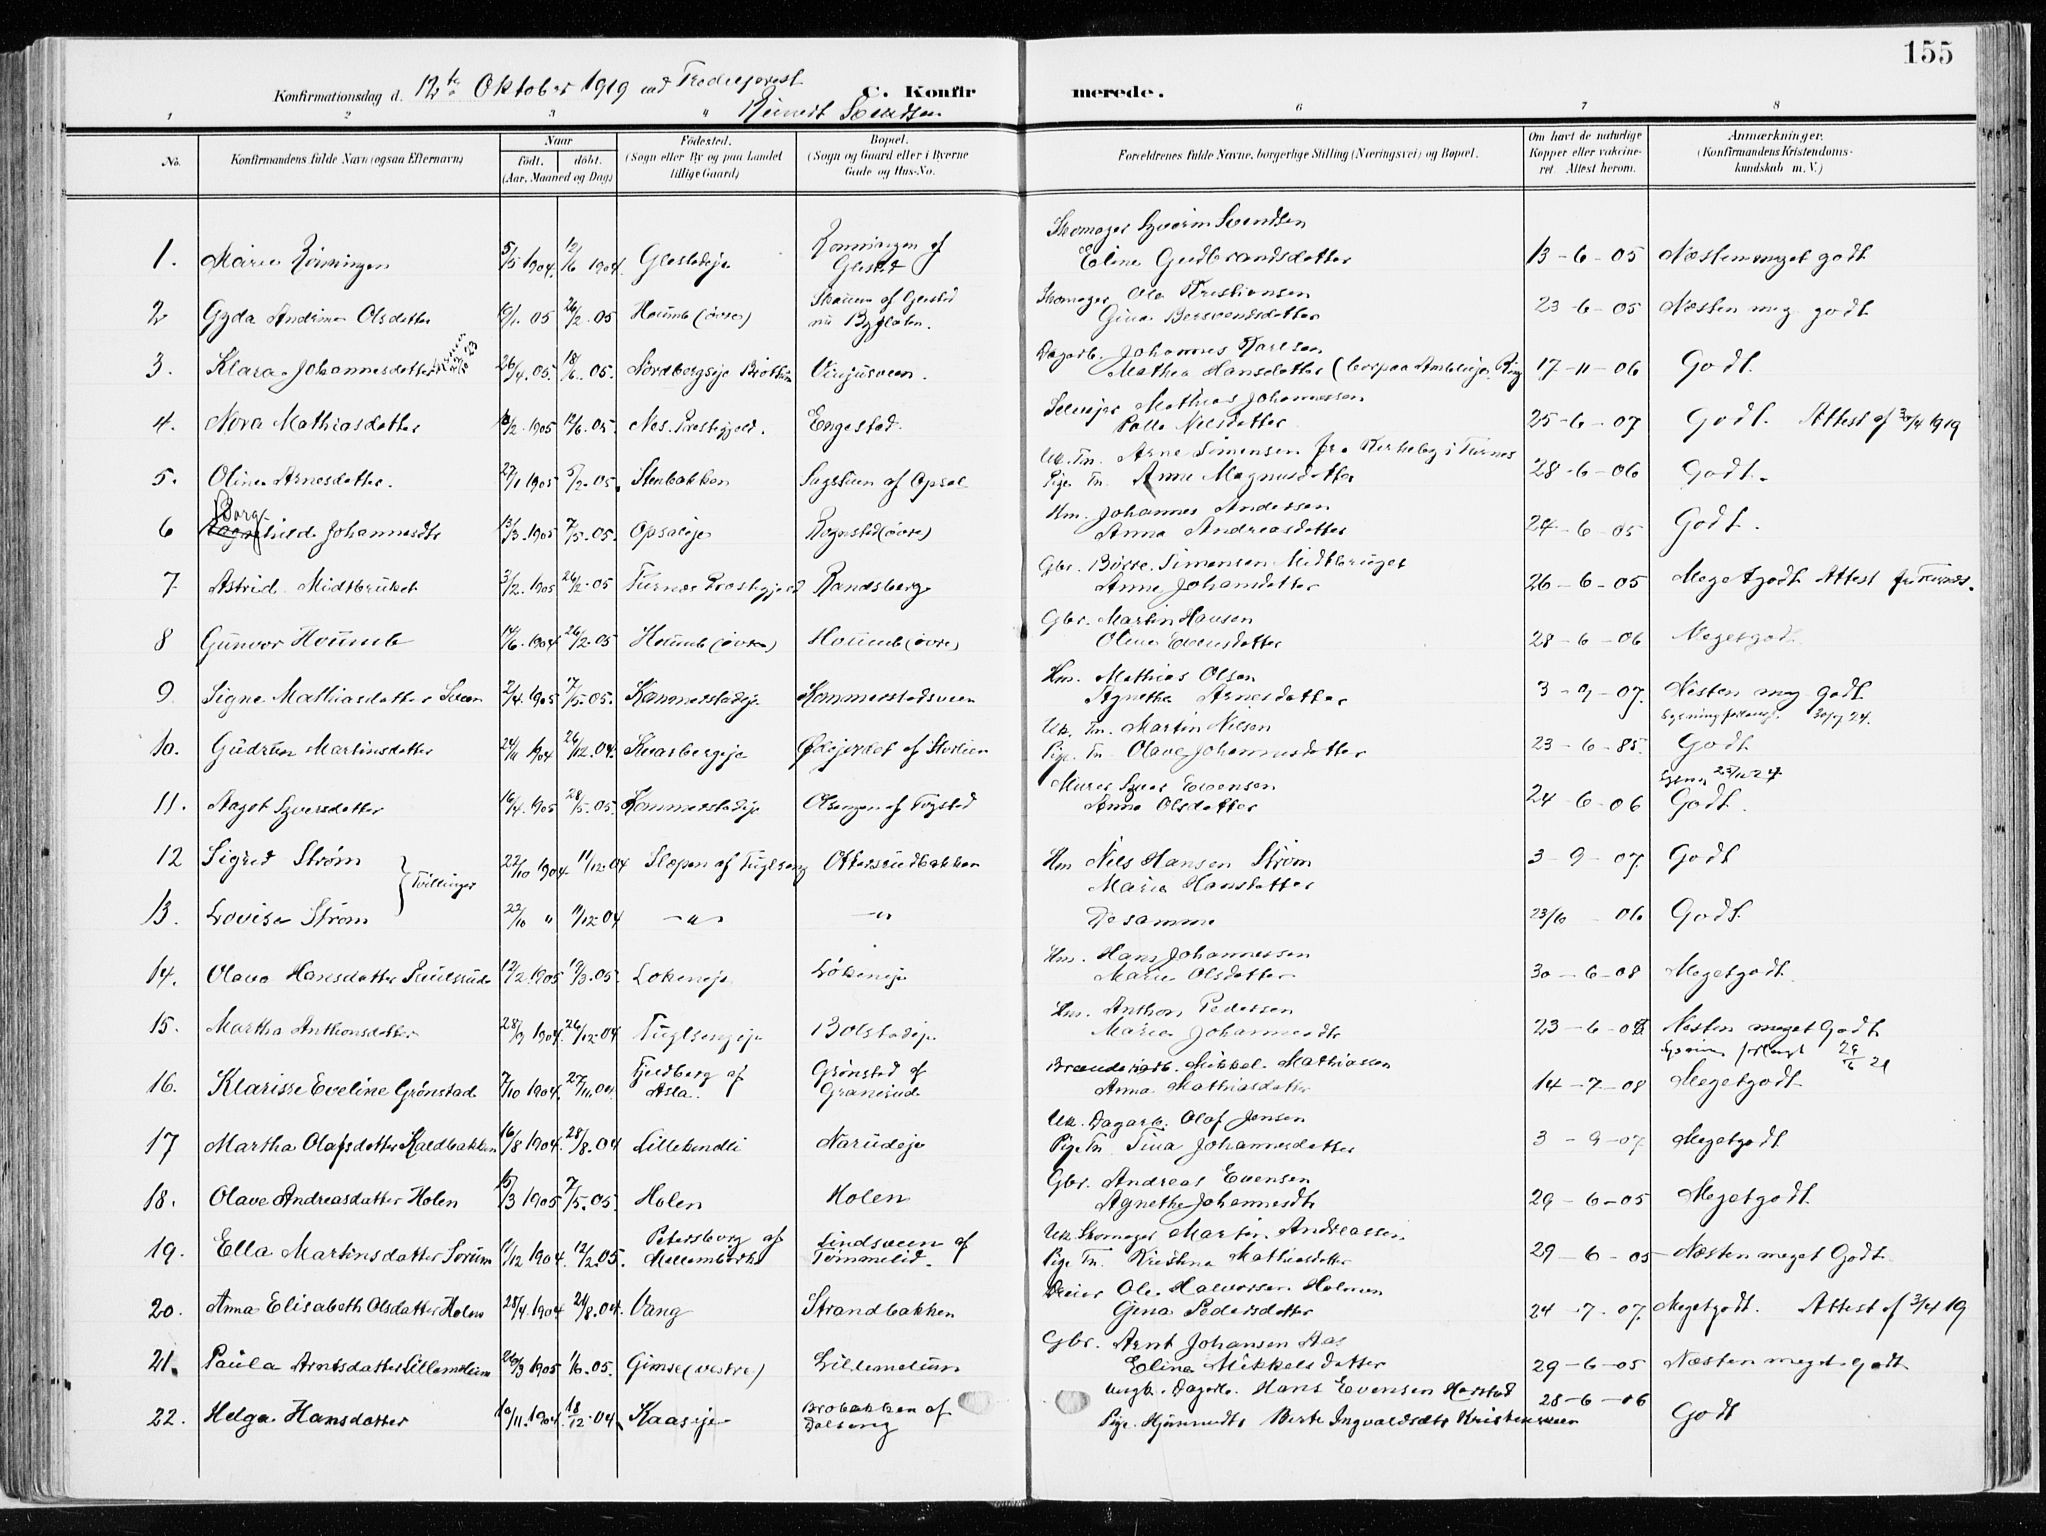 155
Konfirmationsdag d. 12te Oktober 1919 ved
C. Konfirmerede.
1 2 3 6 7 8
No.
Konfirmandens fulde Navn (ogsaa Efternavn)
Naar
født. døbt.
(Aar, Maaned og Dag)
Fødested.
(Sogn eller By og paa Landet
tillige Gaard)
Bopæl.
(Sogn og Gaard eller i Byerne
Gade og Hus-No.
Forældrenes fulde Navne, borgerlige Stilling (Næringsvei) og Bopæl.
Om havt de naturlige
Kopper eller vakcine-
ret. Attest herom.
Anmærkninger.
(Konfirmandens Kristendoms-
kundskab m. V.)
1. Marie Rönningen 5/5 1904 12/6 1904 Glestadeje Rönningen af Glestad
Skomager Syverin Svendsen
Eline Gudbrandsdatter 13-6-05 Næsten meget godt
2 Gyda Andrine Olsdatter 05 26/2 05 Houmb (övre)
Skomager Ole Kristiansen
Gina 23-6-05 Næsten meg. godt
3. Klara Johannesdatter 26/4 05. 18/6 05.
Dagarb. Johannes Karlsen
Mathea Hansdatter 17-11-06 Godt.
4. Nora Mathiasdatter 1905 12/6 05 Nes Prestegjeld. Engestad
Selveier Mathias Johannessen
Nilsdatter 25-6-07 Godt. Attest af 30/4 1919
5. Oline Arnesdatter. 27/1 1905 5/2 05. Stenbakken
Uk. Tm. Arne Simensen fra Kirkeby i Furnes
Pige Tn. Anne Magnusdatter 28-6-06 Godt.
6 Borghild Johannesdtr 13/3 1905 7/5 05. Opsaleje Rognstad (övre)
Hm. Johannes Andersen
Anna Andreasdatter 24-6-05 Godt.
7. Astrid Midtbruket 3/2 1905 26/2 05 Furnes Prestegjeld Randsberg
Gbr. Börre Simensen Midtbruget
Anne Johansdatter 26-6-05 Meget godt Attest fra Furnes.
8 Gunvor Houmb 1904 26/2 05 Houmb (övre) Houmb (övre)
Gbr. Martin Hansen
Oline Evensdatter 28-6-06 Meget godt.
9. Signe Mathiasdatter Sveen 2/4 1905 7/5 05. Kammerstadeje Kammerstadsveen
Hm. Mathias Olsen
Agnethe Arnesdatter 3-9-07. Næsten meg. godt.
10. Gudrun Martinsdatter 24/11 1904 26/12 04. Skarbergeje Ødejordet af Storlien
Uk. Tm. Martin Nilsen
Pige Tn. Olave Johannesdatter 23-6-85. Godt
11. Aagot Syversdatter 16/4 1905 28/5 05 Kammerstadeje Olsengen af Fogstad
Murer Syver Evensen
Anne Olsdatter 24-6-06 Godt.
12 Sigrid Strøm } Tvillinger 22/10 1904 11/12 04 Slæpen af Fuglseng Ottersrudbakken
Hm Nils Hansen Strøm
Marie Hansdatter 3-9-07. Godt
13. Lovise Strøm 22/10 " 11/12 04 -"- -"-
De samme 23/6 - 06 Godt.
14. Olava Hansdatter Paulsrud 12/2 1905 19/3 05 Lökeneje Lökeneje
Hm. Hans Johannessen
Marie Olsdatter 30-6-08 Meget godt.
15. Martha Anthonsdatter 28/9 1904 26/12 04 Fuglsengeje Bolstadeje
Hm. Anthon Pedersen
Maria Johannesdtr 23-6-08 Næsten meget Godt
16. Klarisse Eveline Grønstad 7/10 1904 27/11 04. Fjeldberg af Asla. Grønstad af Granerud
Mikkel Mathiassen
Anna Mathiasdatter 14-7-08 Meget godt
17 Martha Olafsdatter Kaldbakken 16/8 1904 28/8 04 Lillekindli Narudeje
Uk. Dagarb. Olaf Jensen
Pige Tn Tina Johannesdatter 3-9-07. Meget godt
18. Olave Andreasdatter Holen 15/3 1905 7/5 05. Holen Holen
Gbr. Andreas Evensen
Agnethe Johannesdtr 29-6-05 Meget godt.
19. Ella Martinsdatter Sorum 11/12 1904. 12/2 05. Petersborg af Lindsveen af
Uk. Skomager Martin Andreassen
Pige Tn. Kristine Mathiasdatter 29-6-05 Næsten meget Godt.
20. Anna Elisabeth Olsdatter Holen 28/4 1904 21/8 04. Vang Strandbakken
Ole Halvorsen Holmen
Gina Pedersdatter 24-7-07. Meget godt. Attest af 3/4 19
21. Paula Arntsdatter Lillemolum 1905 05. Gimse (vestre) Lillemolum
Gbr. Arnt Johansen Aas
Eline Mikkelsdatter 29-6-05 Næsten meget godt
22. Helga Hansdatter 10/11 1904 18/12 04. Kaaseje Brobakken af Dalseng
Ungk. Dagarb. Hans Evensen
Pige Hjemmedtr Berte Ingvaldsdtr Kristensveen 28-6-06 Godt